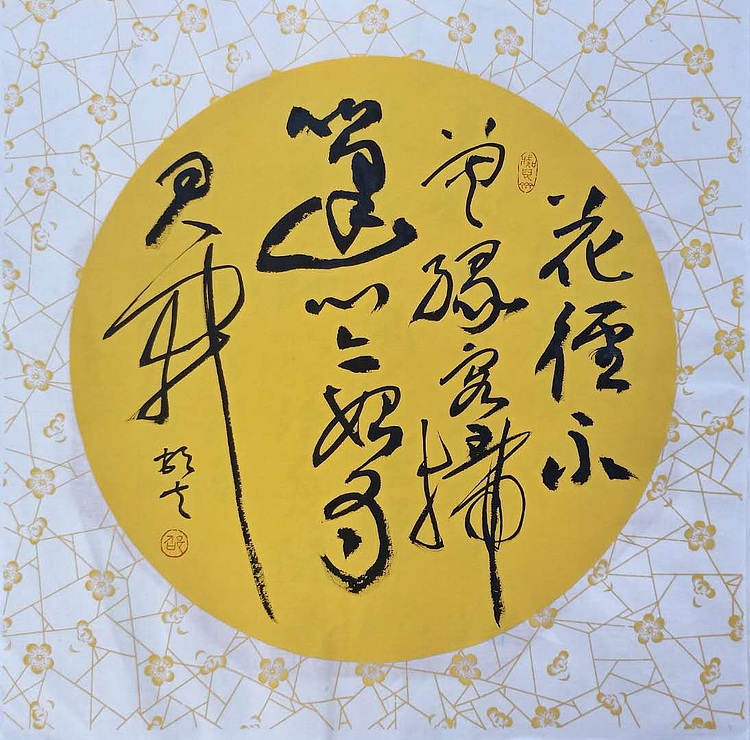 花徑不
曾緣客掃
蓬門今始為
君開